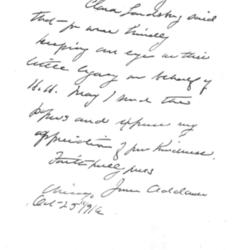 Clara Landsberg said
that you were kindly
keeping an eye on this
little legacy on behalf of
H.H. May I send the
papers and express my
appreciation of your kindness.
Faithfully yours
Jane Addams
Oct - 25 1916